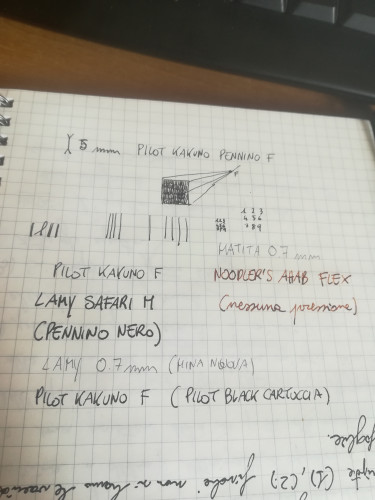 5 mm PILOT KAKUNO PENNINO F
1 2 3
4 5 6
7 8 9
MATITA 0.7 mm
PILOT KAKUNO F
NOODLER'S AHAB FLEX
LAMY SAFARI M
(nessuna pressione)
(PENNINO NERO)
LAMY 0.7 mm (MINA NUOVA)
PILOT KAKUNO F (PILOT BLACK CARTUCCIA)
foglie.
(1), (2) finché non si hanno le